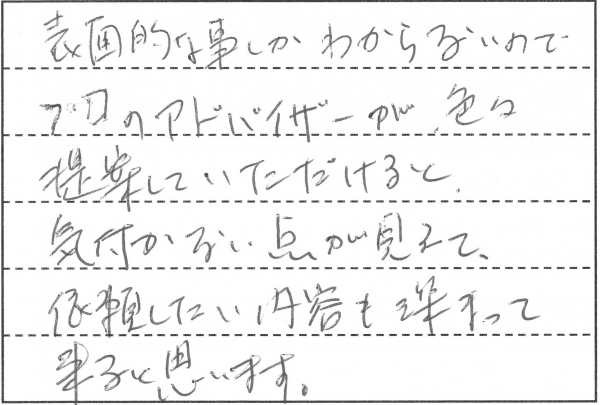 表面的な事しかわからないので
プロのアドバイザーが、色々
提案していただけると、
気付かない点が見えて、
依頼したい内容も深まって
来ると思います。